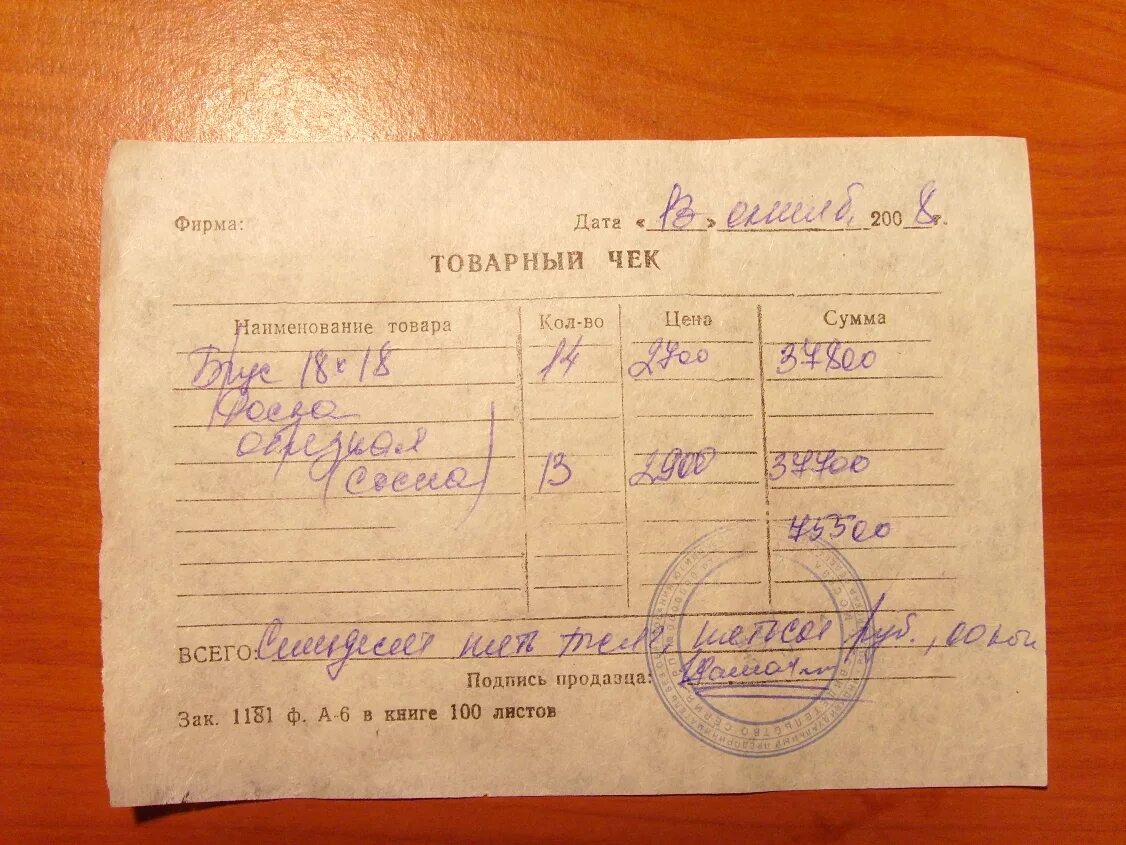 Фирма: Дата «13» октяб. 2008г.
ТОВАРНЫЙ ЧЕК
Наименование товара Кол-во Цена Сумма
Брус 18х18 14 2700 37800
Доска
обрезная
(сосна) 13 2900 37700
75500
ВСЕГО: Семьдесят пять тысяч, пятьсот руб., 00 коп
Подпись продавца:
Зак. 1181 ф. А-6 в книге 100 листов